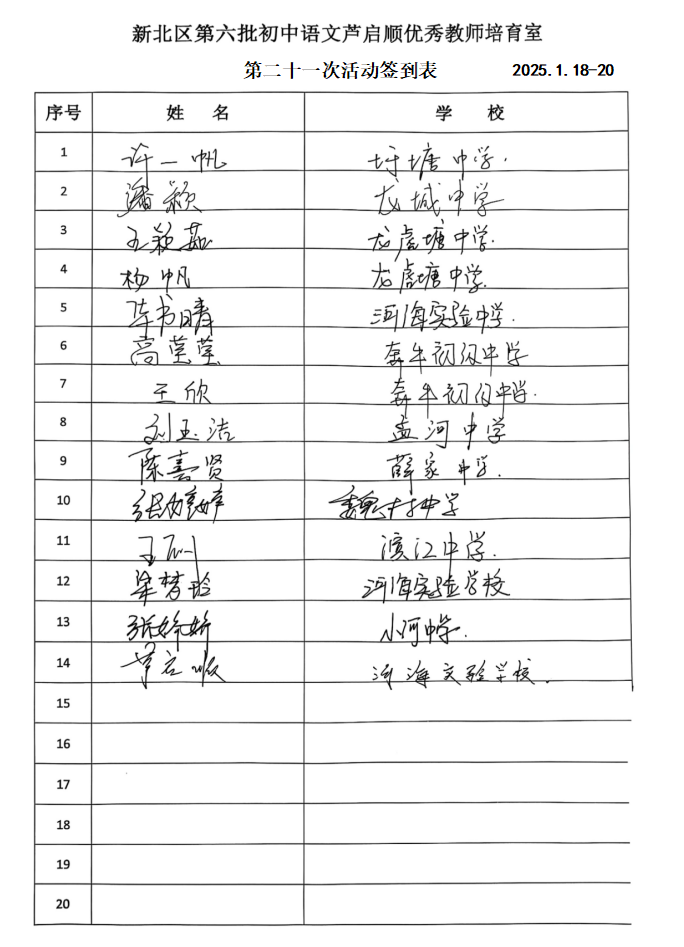 新北区第六批初中语文芦启顺优秀教师培育室
第二十一次活动签到表 2025.1.18-20
序号 姓 名 学 校
1 许一帆 圩塘中学.
2 潘颖 龙城中学
3 王颖茹 龙虎塘中学.
4 杨帆 龙虎塘中学.
5 陈书晴 河海实验中学.
6 高莹莹 奔牛初级中学
7 王欣 奔牛初级中学.
8 刘玉洁 孟河中学
9 陈嘉贤 薛家中学.
10 张婷婷 魏村中学
11 王 滨江中学.
12 梁梦玲 河海实验学校
13 张娇娇 小河中学.
14 芦启顺 河海实验学校.
15
16
17
18
19
20